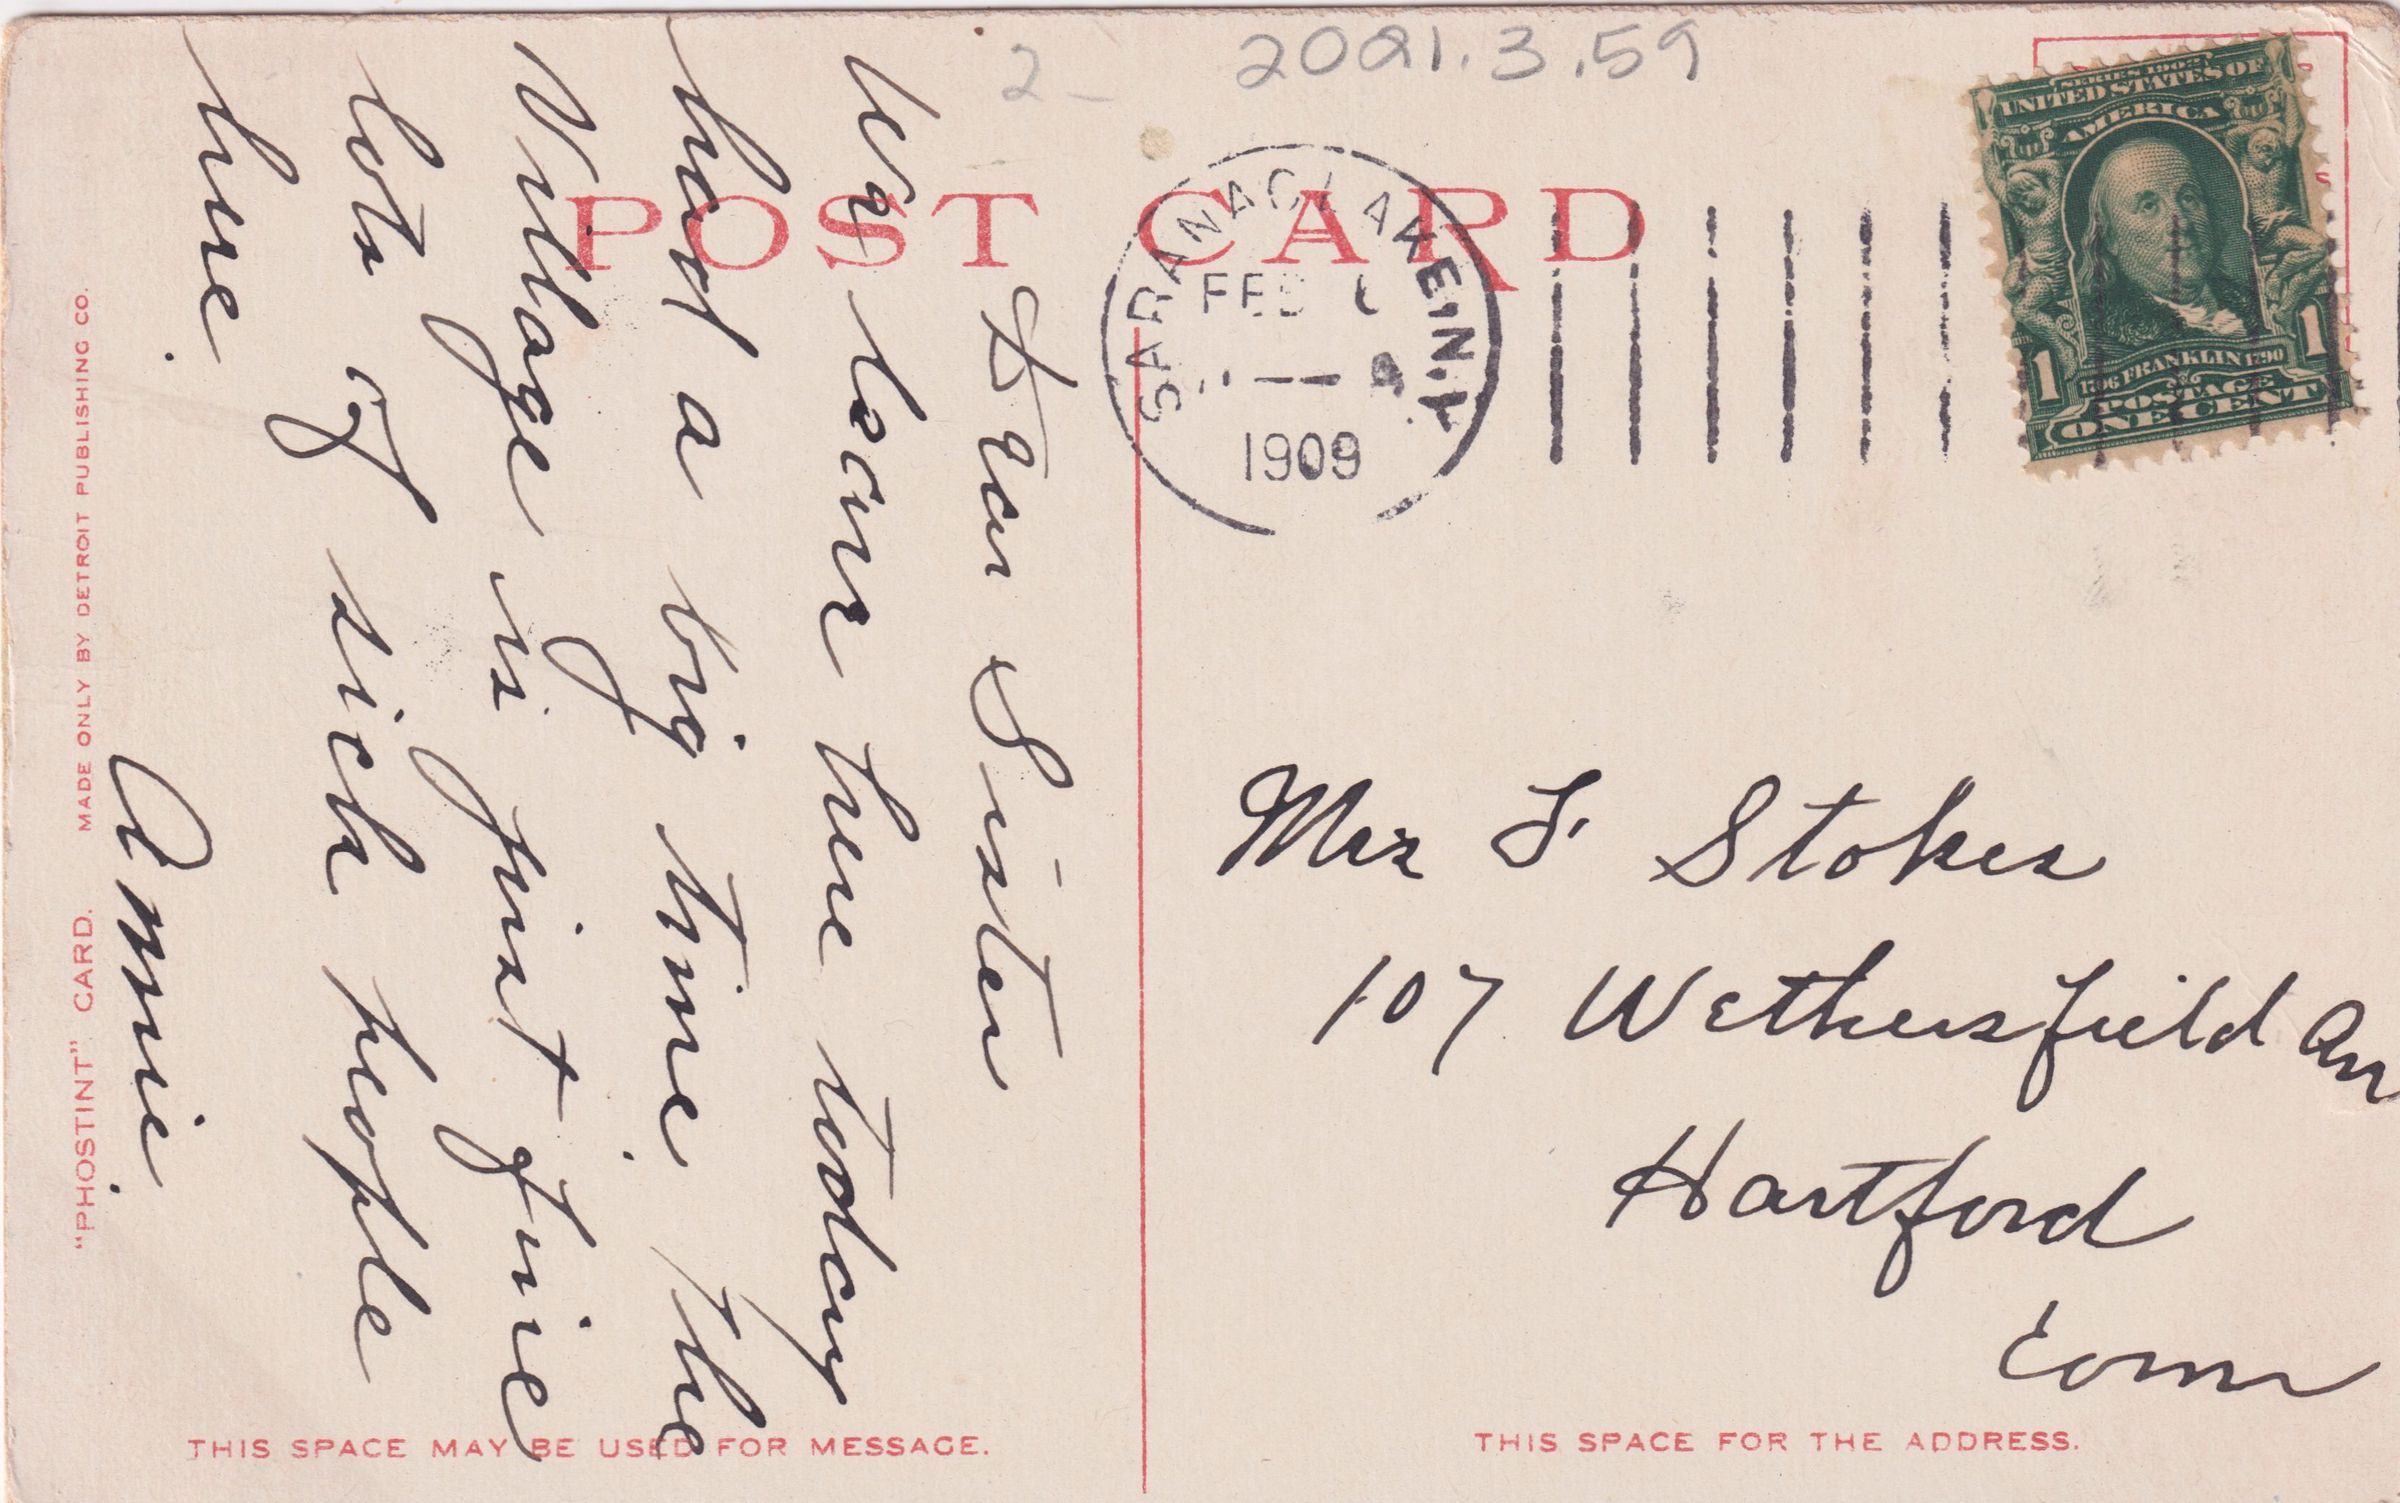 2- 2021.3.59
POST CARD
SARANAC LAKE, N.Y.
FEB
1909
SERIES 1902
UNITED STATES OF
AMERICA
1 1
1706 FRANKLIN 1790
POSTAGE
ONE CENT
Dear Sister
We leave here today
had a big time the
Village is just fine
lots of sick people
here.
Annie.
Mrs F Stokes
107 Wethersfield Av
Hartford
Conn
"PHOSTINT" CARD. MADE ONLY BY DETROIT PUBLISHING CO.
THIS SPACE MAY BE USED FOR MESSAGE.
THIS SPACE FOR THE ADDRESS.